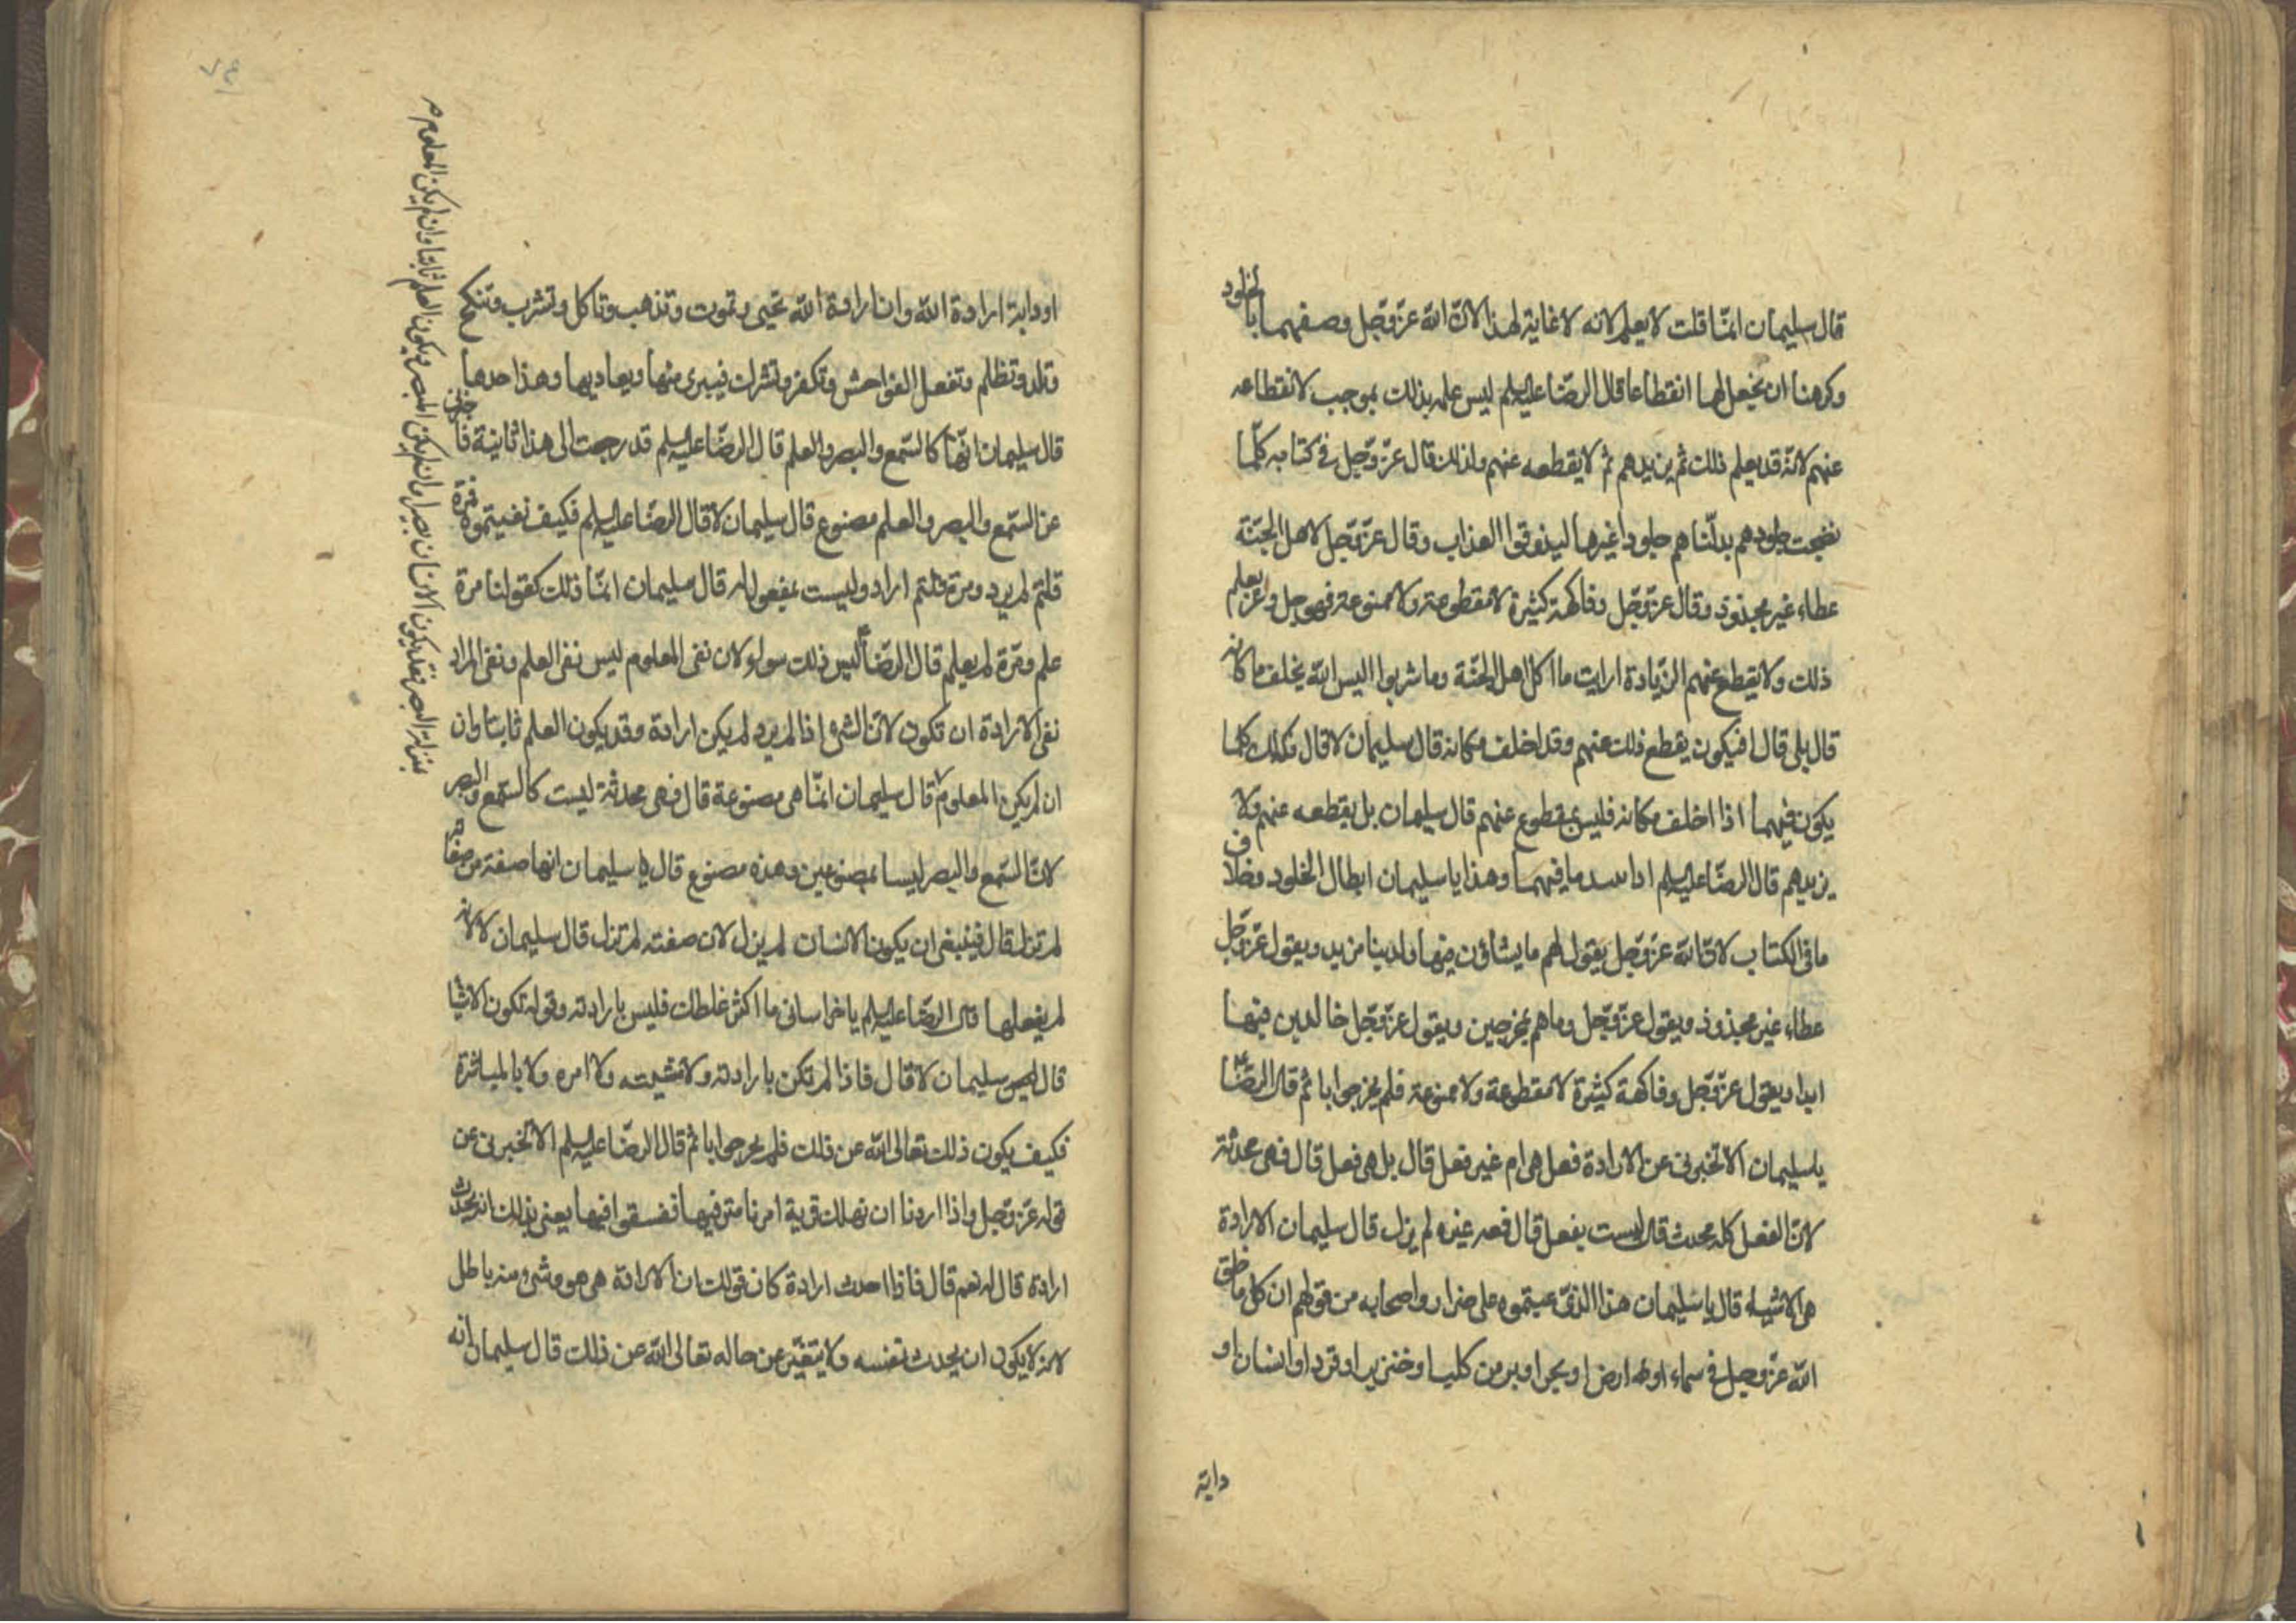 قال سليمان انما قلت لا يعلم لانه لا غاية لهذا لان الله عز وجل وصفهما بالخلود
وكرهنا ان نجعل لهما انقطاعا قال الرضا عليه السلم ليس علمه بذلك بموجب لانقطاعه
عنهم لانه قد يعلم ذلك ثم يزيدهم ثم لا يقطعه عنهم ولذلك قال عز وجل في كتابه كلما
نضجت جلودهم بدلناهم جلودا غيرها ليذوقوا العذاب وقال عز وجل لاهل الجنة
عطاء غير مجذوذ وقال عز وجل وفاكهة كثيرة لا مقطوعة ولا ممنوعة فهو جل وعز يعلم
ذلك ولا يقطع عنهم الزيادة ارايت ما اكل اهل الجنة وما شربوا اليس الله يخلف مكانه
قال بلى قال افيكون يقطع ذلك عنهم وقد اخلف مكانه قال سليمان لا قال فكذلك كلما
يكون فيهما اذا اخلف مكانه فليس بمقطوع عنهم قال سليمان بل يقطعه عنهم ولا
يزيدهم قال الرضا عليه السلم اذا يبيد ما فيهما وهذا يا سليمان ابطال الخلود وخلاف
ما في الكتاب لان الله عز وجل يقول لهم ما يشاؤن فيها ولدينا مزيد ويقول عز وجل
عطاء غير مجذوذ ويقول عز وجل وما هم بمخرجين ويقول عز وجل خالدين فيها
ابدا ويقول عز وجل وفاكهة كثيرة لا مقطوعة ولا ممنوعة فلم يحر جوابا ثم قال الرضا ع
يا سليمان الا تخبرني عن الارادة فعل هي ام غير فعل قال بل هي فعل قال فهي محدثة
لان الفعل كله محدث قال ليست بفعل قال فمعه غيره لم يزل قال سليمان الارادة
هي الاشياء قال يا سليمان هذا الذي عبتموه على ضرار واصحابه من قولهم ان كل ما خلق
الله عز وجل في سماء او ارض او بحر او بر من كلب او خنزير او قرد او انسان او
دابة
او دابة ارادة الله وان ارادة الله تحيى وتموت وتذهب وتاكل وتشرب وتنكح
وتلد وتظلم وتفعل الفواحش وتكفر وتشرك فيبرى منها ويعاديها وهذا حدها
قال سليمان انها كالسمع والبصر والعلم قال الرضا عليه السلم قد رجعت الى هذا ثانية فاخبرني
عن السمع والبصر والعلم مصنوع قال سليمان لا قال الرضا عليه السلم فكيف نفيتموه فمرة
قلتم لم يرد ومرة قلتم اراد وليست بمفعول له قال سليمان انما ذلك كقولنا مرة
علم ومرة لم يعلم قال الرضا ع ليس ذلك سواء لان نفى المعلوم ليس نفى العلم ونفى المراد
نفى الارادة ان تكون لان الشىء اذا لم يرد لم يكن ارادة وقد يكون العلم ثابتا وان
ان لم يكن المعلوم قال سليمان انما هي مصنوعة قال فهي محدثة ليست كالسمع والبصر
لان السمع والبصر ليسا بمصنوعين وهذه مصنوع قال يا سليمان انها صفة من صفاته
لم تزل قال فينبغى ان يكون الانسان لم يزل لان صفته لم تزل قال سليمان لا لانه
لم يفعلها قال الرضا عليه السلم يا خراساني ما اكثر غلطك فليس بارادته وقوله تكون الاشيا
قال سليمان لا قال فاذا لم تكن بارادته ولا مشيته ولا امره ولا بالمباشرة
فكيف يكون ذلك تعالى الله عن ذلك فلم يحر جوابا ثم قال الرضا عليه السلم الا تخبرني عن
قوله عز وجل واذا اردنا ان نهلك قرية امرنا مترفيها ففسقوا فيها يعنى بذلك انه يحدث
ارادة قال له نعم قال فاذا احدث ارادة كان قولك ان الارادة هي هو وشىء منه باطل
لانه لا يكون ان يحدث نفسه ولا يتغير عن حاله تعالى الله عن ذلك قال سليمان انه
بمنزلة البصر فقد يكون الانسان بصيرا وان لم يكن المبصر ويكون العلم ثابتا وان لم يكن المعلوم